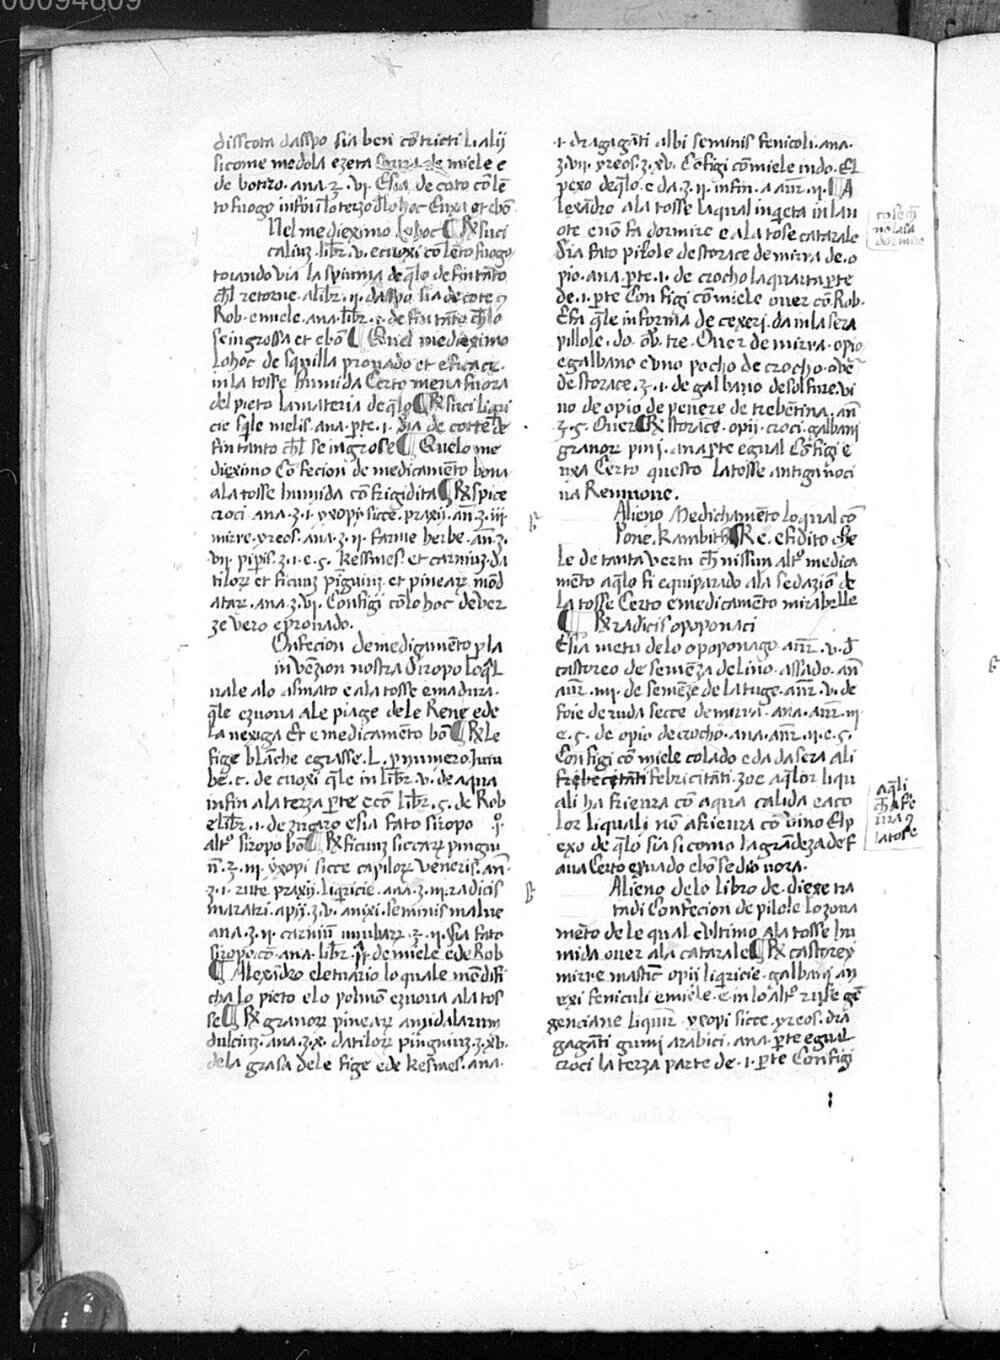 00094609
disscota dasspo sia ben cōtricti li alij
sicome medola ezeta miele e
de botiro. ana. ʒ. vi. Esia de coto cō lē
to fuogo infin il terzo d lohoc Euxa et ebō
Nel medieximo Lohoc ¶ ℞ suci
calius. libr̄. v. e cuoxi cō lēto fuogo
toiando via la spiuma de q̄lo de fin tāto
ch̄l retorne a libr̄. ij. dasspo sia de cote ꝯ
Rob. e miele. ana. libr̄. s. de fin tāto ch̄lo
se ingrossa et e bō ¶ Quel mediximo
Lohoc de squilla prouado et eficace.
in la tosse humida Certo mena fuora
del pieto la materia de q̄lo ¶ ℞ suci liqui
cie sq̄le melis. ana. p̄te. i. Sia de cotte de
fin tanto ch̄l se ingrose ¶ Quelo me
dieximo Cōfecion de medicamēto bona
a la tosse humida cō frigidita ¶ ℞ spice
croci ana. ʒ. i. yxopi sicce. praxij. an̄. ʒ. iii.
mirre. yreos. ana. ʒ. ii. farine herbe. an̄. ʒ.
vii. pip̄is. ʒ. i. e. s. Kessmes. et carniuʒ. da
tiloꝝ et ficuuʒ p̄iguiuʒ. et pineaꝝ mōd
ataꝝ. ana. ʒ. vj. Configi cō lohoc de ver
ze vero e prouado.
Onfecion de medigamēto ꝑ la
inuēzion nostra Siropo loq̄l
uale alo asmato e a la tosse e madura.
q̄le ezuoua a le piage de le Rene e de
la vexiga Et e medicamēto bō ¶ ℞ Le
fige blanche e grasse. L. ꝑ numero. Juiu
be. c. de cuoxi q̄le in libr̄. v. de aqua
infin a la terza p̄te e cō libr̄. s. de Rob
e libr̄. i. de zucaro e sia fato siropo
alt° siropo bō ¶ ℞ ficuuʒ siccaꝝ pinguiu
ʒ. iii. yxopi sicce capiloꝝ veneris. an̄.
ʒ. i. rute praxij. liq̄ricie. ana. ʒ. iii. radicis
maratri. apij. ʒ. v. anixi. seminis malue
ana. ʒ. ii. Sia fato
siropo cō. ana. libr̄. de miele e de Rob
¶ Alexādro eletuario lo quale mēdifi
cha lo pieto e lo polmō ezuoua a la tos
se ¶ ℞ granoꝝ pineaꝝ amidalarum
dulciuʒ. ana. ʒ. x. datiloꝝ pinguiuʒ. ʒ. xv.
de la grasa de le fige e de Kesmes. ana.
i. dragagāti albi seminis fenicoli. ana.
ʒ. vii. yreos. ʒ. xv. Cōfigi cō miele in do. El
pexo de q̄lo. e da. ʒ. ii. infin. a aur̄. ii. ¶ A
lexādro a la tosse la qual inq̄ieta in la n
ote e nō fa dormire e a la tose catarale
Sia fato pilole de storace de mirra de. o
pio. ana. p̄te. i. de crocho la quarta p̄te
de. i. p̄te Configi cō miele ouer cō Rob.
E fa q̄le in forma de cexeri. da in la sera
pillole. do. ov̄. tre. Ouer de mirra. opio
e galbano e vno pocho de crocho. ouē
de storace. ʒ. i. de galbano de solfure. vi
no de opio de peuere de trebētina. an̄
ʒ. s. Ouer ¶ ℞ storace. opij. croci. galbani
granoꝝ pinj. ana p̄te egual Cōfigi e
uxa Certo questo la tosse antiga noci
ua Remuoue.
Alieno Medichamēto lo qual cō
pone. Rambith ¶ Re. e fidito che
le de tanta vertu ch̄ nissun alt° medica
mēto a q̄lo si equiparado a la sedaziō de
la tosse Certo e medicamēto mirabelle
¶ ℞ radicis opoponaci
E sia metu de lo opoponago. aur̄. v. d̄
castoreo de semēza de lino. assado. an̄
aur̄. iiii. de semēze de latuge. aur̄. v. de
foie de ruda secce de mirra. ana. aur̄. iii
e. s. de opio de crocho. ana. aur̄. ii. e. s.
Configi cō miele colado e da da sera a li
frebecetāti febricitāti. zoe a q̄lor li qu
ali ha frieura cō aqua calida e a co
lor li quali nō a frieura cō vino El p
exo de q̄lo sia si como la grādeza de f
aua Certo e prouado e bō se dio vora.
Alieno de lo libro de. diexe tra
tadi Confecion de pilole lo zoua
mēto de le qual e vltimo a la tosse hu
mida ouer a la catarale ¶ ℞ castorey
mirre mastic̄ opii liq̄ricie. galbani an
exi feniculi e miele. e in lo alt° ruse gē
genciane liquir̄ yxopi sicce. yreos. dra
gagāti gumi arabici. ana. p̄te egual
croci la terza parte de. i. p̄te Configi
tose ch̄
no lasa
dormire
a q̄li
ch̄ a fe
ura ꝯ
la tose